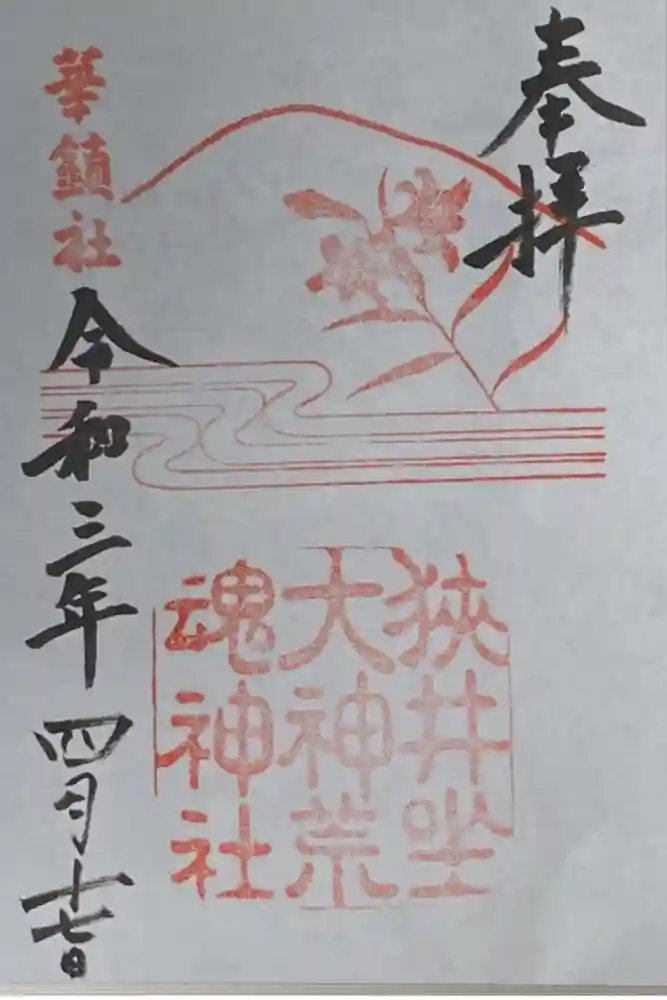 奉拝
狭井坐
大神荒
魂神社
華鎮社
令和三年四月十七日